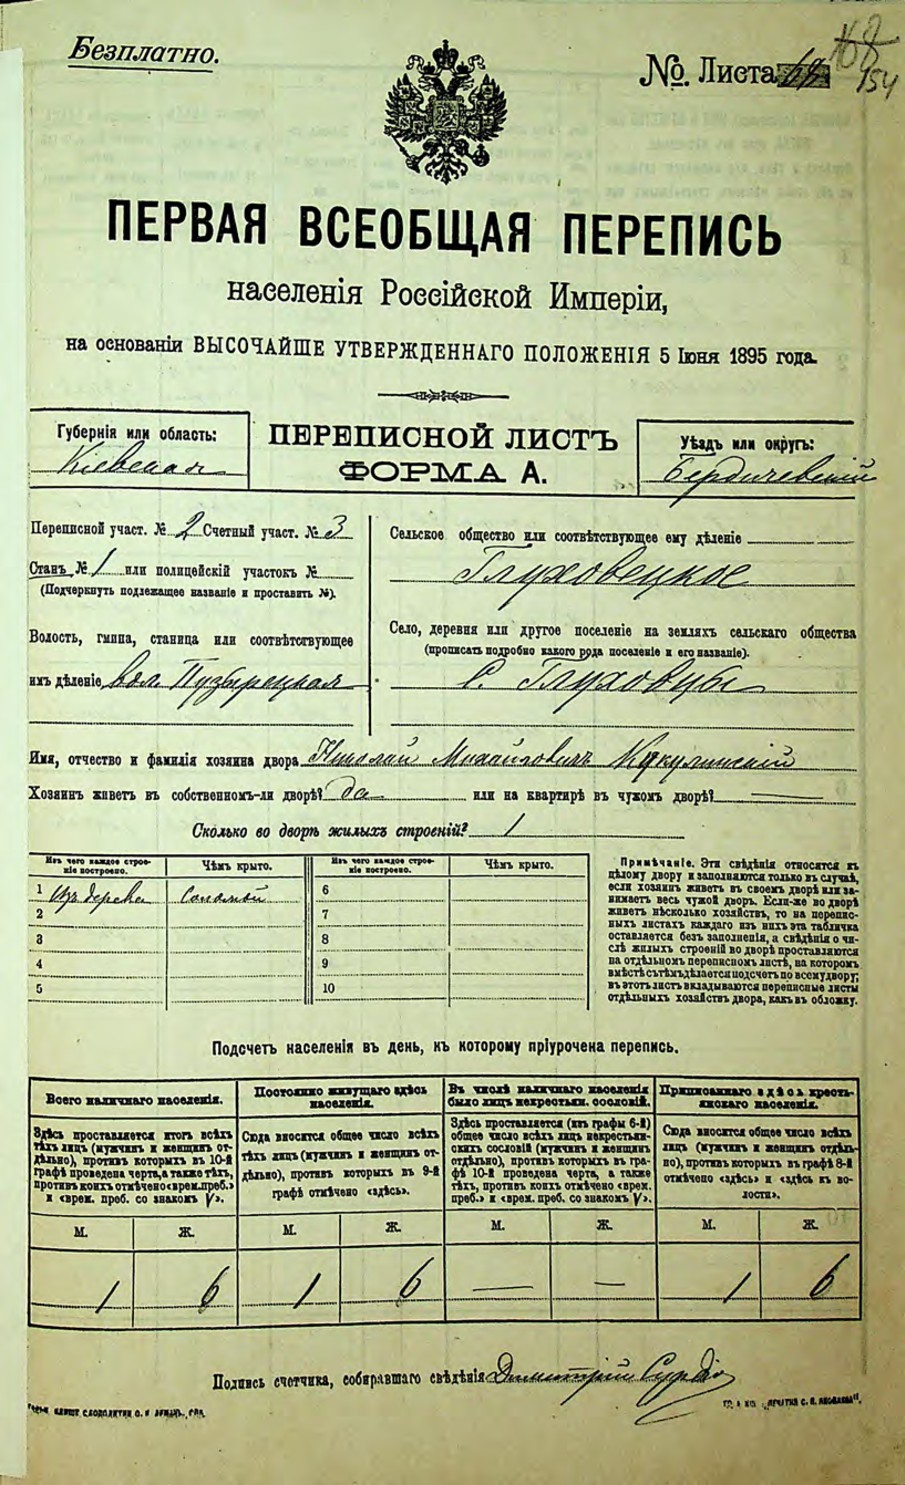 Безплатно.
№. Листа
154
ПЕРВАЯ ВСЕОБЩАЯ ПЕРЕПИСЬ
населенія Россійской Имперіи,
на основаніи ВЫСОЧАЙШЕ УТВЕРЖДЕННАГО ПОЛОЖЕНІЯ 5 Іюня 1895 года.
Губернія или область:
Кіевская
ПЕРЕПИСНОЙ ЛИСТЪ
ФОРМА А.
Уѣздъ или округъ:
Бердичевскій
Переписной участ. № 2 Счетный участ. № 3
Станъ № 1 или полицейскій участокъ №
(Подчеркнуть подлежащее названіе и проставить №).
Волость, гмина, станица или соотвѣтствующее
имъ дѣленіе вол. Пузырецкая
Сельское общество или соотвѣтствующее ему дѣленіе
Глуховецкое
Село, деревня или другое поселеніе на земляхъ сельскаго общества
(прописать подробно какого рода поселеніе и его названіе).
С. Глуховцы
Имя, отчество и фамилія хозяина двора Николай Михайловичъ
Хозяинъ живетъ въ собственномъ-ли дворѣ? да или на квартирѣ въ чужомъ дворѣ? —
Сколько во дворѣ жилыхъ строеній? 1
Изъ чего каждое строеніе построено. Чѣмъ крыто. Изъ чего каждое строеніе построено. Чѣмъ крыто.
1 Изъ дерева Соломой 6
2 7
3 8
4 9
5 10
Примѣчаніе. Эти свѣдѣнія относятся къ
цѣлому двору и заполняются только въ случаѣ,
если хозяинъ живетъ въ своемъ дворѣ или за-
нимаетъ весь чужой дворъ. Если-же во дворѣ
живетъ нѣсколько хозяйствъ, то на перепис-
ныхъ листахъ каждаго изъ нихъ эта табличка
оставляется безъ заполненія, а свѣдѣнія о чи-
слѣ жилыхъ строеній во дворѣ проставляются
на отдѣльномъ переписномъ листѣ, на которомъ
вмѣстѣ съ тѣмъ дѣлается подсчетъ по всему двору;
въ этотъ листъ вкладываются переписные листы
отдѣльныхъ хозяйствъ двора, какъ въ обложку.
Подсчетъ населенія въ день, къ которому пріурочена перепись.
Всего наличнаго населенія.
Здѣсь проставляется итогъ всѣхъ
тѣхъ лицъ (мужчинъ и женщинъ от-
дѣльно), противъ которыхъ въ 10-й
графѣ проведена черта, а также тѣхъ,
противъ коихъ отмѣчено «врем. преб.»
и «врем. преб. со знакомъ V».
Постоянно живущаго здѣсь
населенія.
Сюда вносится общее число всѣхъ
тѣхъ лицъ (мужчинъ и женщинъ от-
дѣльно), противъ которыхъ въ 9-й
графѣ отмѣчено «здѣсь».
Въ числѣ наличнаго населенія
было лицъ некрестьян. сословій.
Здѣсь проставляется (изъ графы 6-й)
общее число всѣхъ лицъ некрестьян-
скихъ сословій (мужчинъ и женщинъ
отдѣльно), противъ которыхъ въ гра-
фѣ 10-й проведена черта, а также
тѣхъ, противъ коихъ отмѣчено «врем.
преб.» и «врем. преб. со знакомъ V».
Приписаннаго здѣсь кресть-
янскаго населенія.
Сюда вносится общее число всѣхъ
лицъ (мужчинъ и женщинъ отдѣль-
но), противъ которыхъ въ графѣ 8-й
отмѣчено «здѣсь» и «здѣсь къ во-
лости».
М. Ж. М. Ж. М. Ж. М. Ж.
1 6 1 6 — — 1 6
Подпись счетчика, собиравшаго свѣдѣнія Димитрій